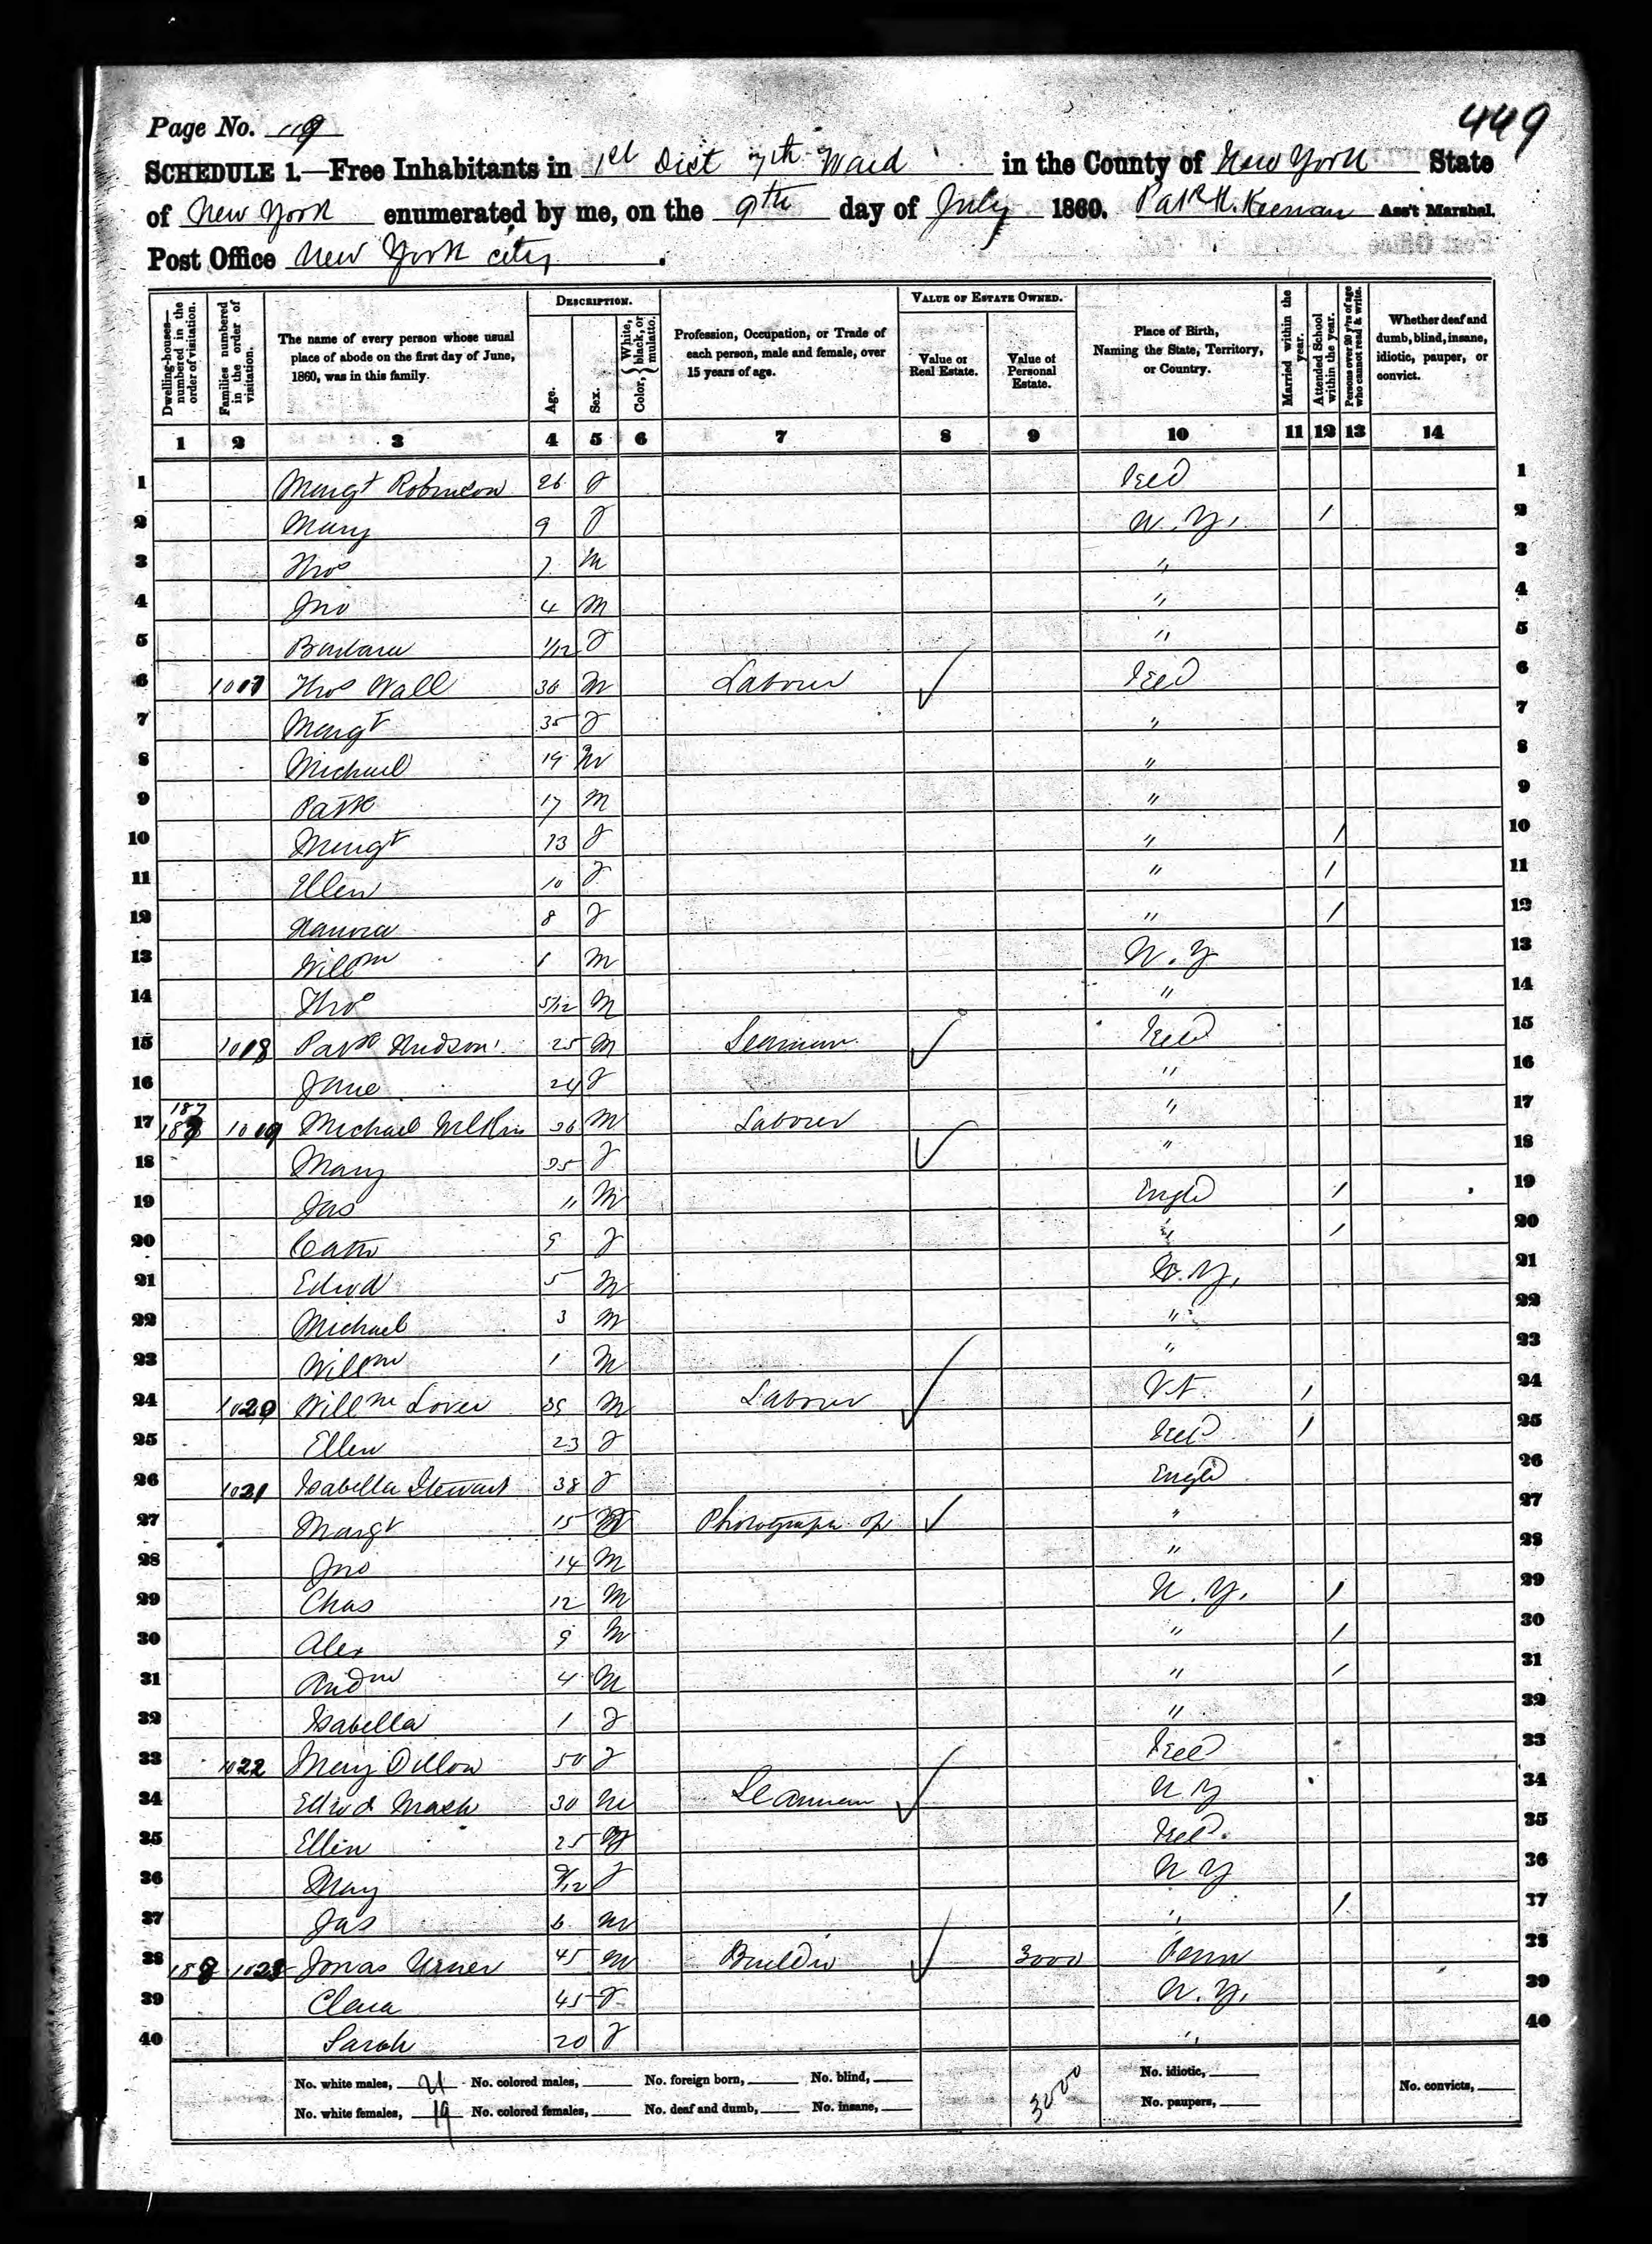 449
Page No. 119
SCHEDULE 1.—Free Inhabitants in 1st Dist 7th Ward in the County of New York State
of New York enumerated by me, on the 9th day of July 1860. Patk H. Keenan Ass't Marshal.
Post Office New York city.
Dwelling-houses—numbered in the order of visitation.
Families numbered in the order of visitation.
The name of every person whose usual place of abode on the first day of June, 1860, was in this family.
DESCRIPTION.
Age.
Sex.
Color, White, black, or mulatto.
Profession, Occupation, or Trade of each person, male and female, over 15 years of age.
VALUE OF ESTATE OWNED.
Value of Real Estate.
Value of Personal Estate.
Place of Birth, Naming the State, Territory, or Country.
Married within the year.
Attended School within the year.
Persons over 20 y'rs of age who cannot read & write.
Whether deaf and dumb, blind, insane, idiotic, pauper, or convict.
1 2 3 4 5 6 7 8 9 10 11 12 13 14
1 Margt Robinson 26 f Ireld 1
2 Mary 9 f N.Y. / 2
3 Thos 7 M " 3
4 Jno 4 M " 4
5 Barbara 1/12 f " 5
6 1017 Thos Wall 36 M Labourer Ireld 6
7 Margt 35 f " 7
8 Michael 19 M " 8
9 Patk 17 M " 9
10 Margt 13 f " / 10
11 Ellen 10 f " / 11
12 Hanora 8 f " / 12
13 Willm 1 M N.Y 13
14 Thos 5/12 M " 14
15 1018 Patk Hudson 25 M Seaman Ireld 15
16 Jane 24 f " 16
17 187 1019 Michael 36 M Labourer " 17
18 Mary 35 f " 18
19 Jas 11 M Engld / 19
20 Cath 9 f " / 20
21 Edwd 5 M N.Y. 21
22 Michael 3 M " 22
23 Willm 1 M " 23
24 1020 Willm M Labourer Vt / 24
25 Ellen 23 f Ireld / 25
26 1021 Isabella Stewart 38 f Engld 26
27 Margt 15 Photograph op " 27
28 Jno 14 M " 28
29 Chas 12 M N.Y. / 29
30 Alex 9 M " / 30
31 Andw 4 M " / 31
32 Isabella 1 f " 32
33 1022 Mary Dillon 50 f Ireld 33
34 Edwd Nash 30 M Seaman N Y 34
35 Ellen 25 f Ireld. 35
36 Mary 9/12 f N Y 36
37 Jas 6 M " / 37
38 188 1023 Jonas Urner 45 M Builder 3000 Penn 38
39 Clara 45 f N.Y. 39
40 Sarah 20 f " 40
No. white males, 21 No. colored males, No. foreign born, No. blind, 3000 No. idiotic, No. convicts,
No. white females, 19 No. colored females, No. deaf and dumb, No. insane, No. paupers,